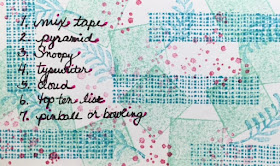 1. mix tape
2. pyramid
3. Snoopy
4. typewriter
5. cloud
6. top ten list
7. pinball or bowling